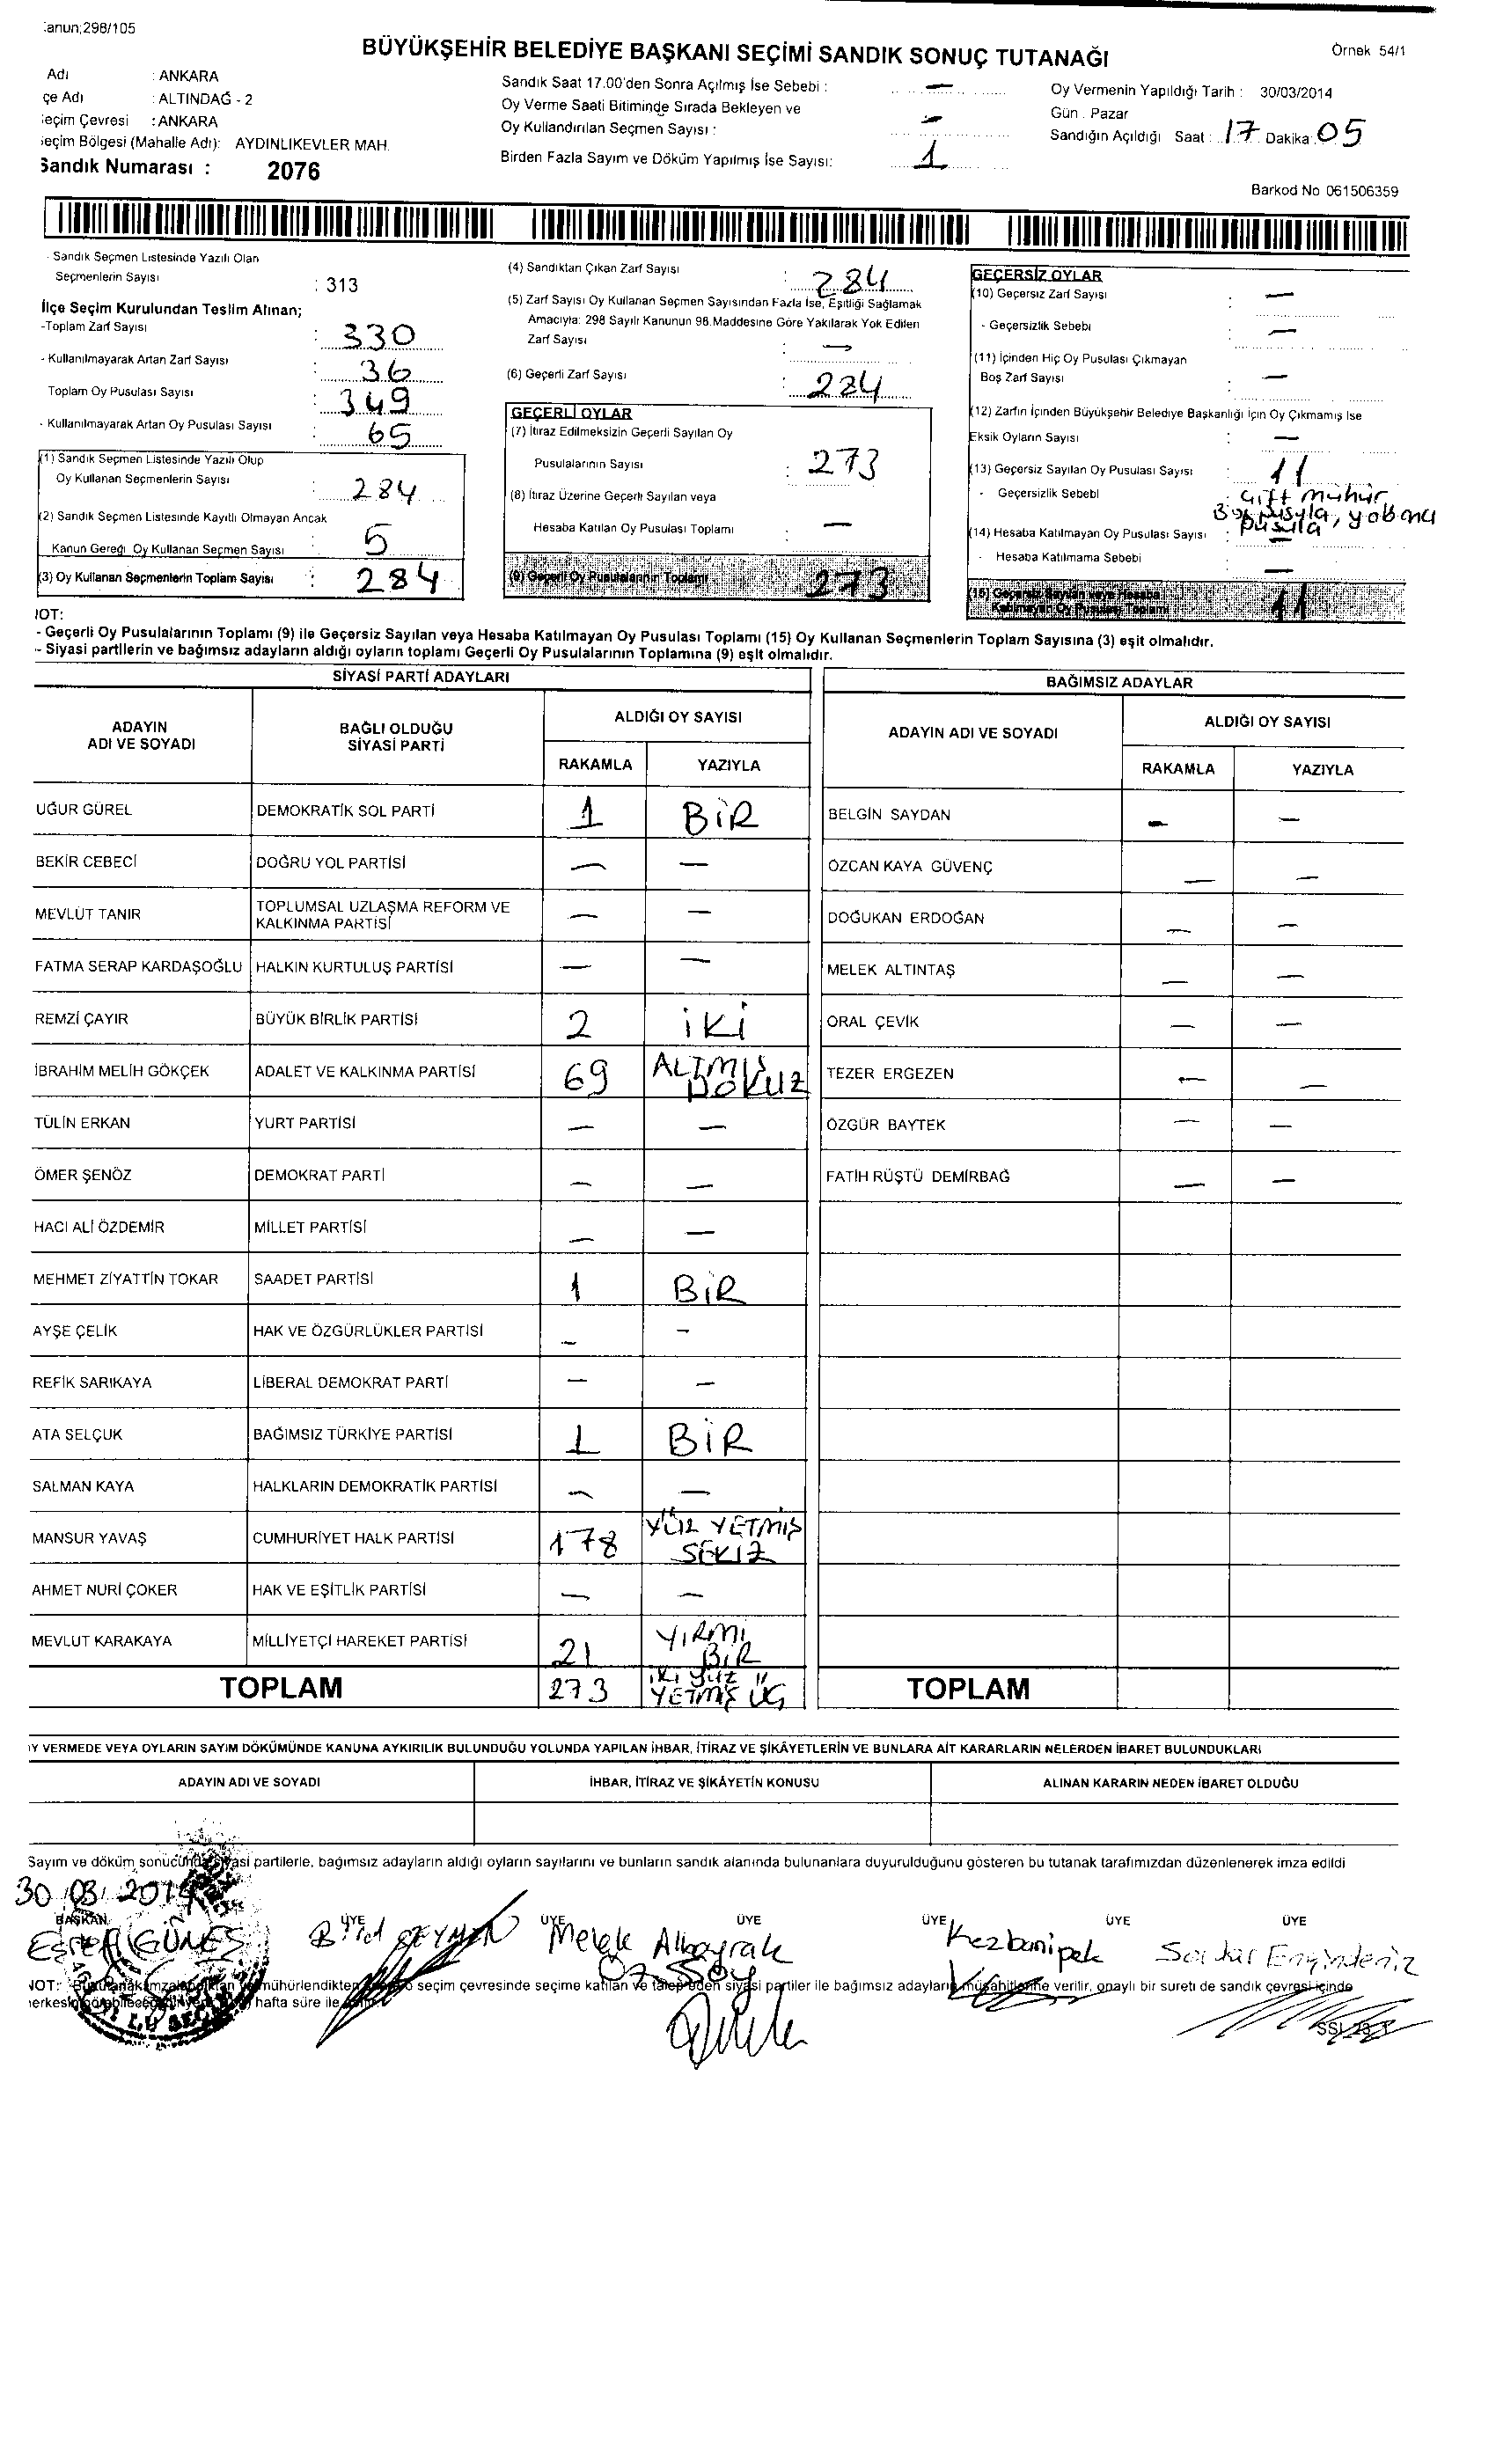 anun;298/105
BÜYÜKŞEHİR BELEDİYE BAŞKANI SEÇİMİ SANDIK SONUÇ TUTANAĞI
Örnek 54/1
Adı : ANKARA
çe Adı : ALTINDAĞ - 2
eçim Çevresi : ANKARA
eçim Bölgesi (Mahalle Adı): AYDINLIKEVLER MAH.
Sandık Numarası : 2076
Sandık Saat 17.00'den Sonra Açılmış İse Sebebi : —
Oy Verme Saati Bitiminde Sırada Bekleyen ve
Oy Kullandırılan Seçmen Sayısı : —
Birden Fazla Sayım ve Döküm Yapılmış İse Sayısı: 1
Oy Vermenin Yapıldığı Tarih : 30/03/2014
Gün : Pazar
Sandığın Açıldığı Saat : 17 Dakika: 05
Barkod No 061506359
- Sandık Seçmen Listesinde Yazılı Olan
Seçmenlerin Sayısı : 313
İlçe Seçim Kurulundan Teslim Alınan;
-Toplam Zarf Sayısı : 330
- Kullanılmayarak Artan Zarf Sayısı : 36
Toplam Oy Pusulası Sayısı : 349
- Kullanılmayarak Artan Oy Pusulası Sayısı : 65
(1) Sandık Seçmen Listesinde Yazılı Olup
Oy Kullanan Seçmenlerin Sayısı : 284
(2) Sandık Seçmen Listesinde Kayıtlı Olmayan Ancak
Kanun Gereği Oy Kullanan Seçmen Sayısı : 5
(3) Oy Kullanan Seçmenlerin Toplam Sayısı : 284
(4) Sandıktan Çıkan Zarf Sayısı : 284
(5) Zarf Sayısı Oy Kullanan Seçmen Sayısından Fazla İse, Eşitliği Sağlamak
Amacıyla: 298 Sayılı Kanunun 98.Maddesine Göre Yakılarak Yok Edilen
Zarf Sayısı : —
(6) Geçerli Zarf Sayısı : 284
GEÇERLİ OYLAR
(7) İtiraz Edilmeksizin Geçerli Sayılan Oy
Pusulalarının Sayısı : 273
(8) İtiraz Üzerine Geçerli Sayılan veya
Hesaba Katılan Oy Pusulası Toplamı : —
(9) Geçerli Oy Pusulalarının Toplamı 273
GEÇERSİZ OYLAR
(10) Geçersiz Zarf Sayısı : —
- Geçersizlik Sebebi : —
(11) İçinden Hiç Oy Pusulası Çıkmayan
Boş Zarf Sayısı : —
(12) Zarfın İçinden Büyükşehir Belediye Başkanlığı İçin Oy Çıkmamış İse
Eksik Oyların Sayısı : —
(13) Geçersiz Sayılan Oy Pusulası Sayısı : 11
- Geçersizlik Sebebi : Çift mühür
Boş pusula, yabancı
pusula
(14) Hesaba Katılmayan Oy Pusulası Sayısı : —
- Hesaba Katılmama Sebebi —
(15) Geçersiz Sayılan veya Hesaba
Katılmayan Oy Pusulası Toplamı 11
NOT:
- Geçerli Oy Pusulalarının Toplamı (9) ile Geçersiz Sayılan veya Hesaba Katılmayan Oy Pusulası Toplamı (15) Oy Kullanan Seçmenlerin Toplam Sayısına (3) eşit olmalıdır.
- Siyasi partilerin ve bağımsız adayların aldığı oyların toplamı Geçerli Oy Pusulalarının Toplamına (9) eşit olmalıdır.
SİYASİ PARTİ ADAYLARI
ADAYIN ADI VE SOYADI BAĞLI OLDUĞU SİYASİ PARTİ ALDIĞI OY SAYISI
RAKAMLA YAZIYLA
UĞUR GÜREL DEMOKRATİK SOL PARTİ 1 BİR
BEKİR CEBECİ DOĞRU YOL PARTİSİ — —
MEVLÜT TANIR TOPLUMSAL UZLAŞMA REFORM VE KALKINMA PARTİSİ — —
FATMA SERAP KARDAŞOĞLU HALKIN KURTULUŞ PARTİSİ — —
REMZİ ÇAYIR BÜYÜK BİRLİK PARTİSİ 2 İKİ
İBRAHİM MELİH GÖKÇEK ADALET VE KALKINMA PARTİSİ 69 ALTMIŞ DOKUZ
TÜLİN ERKAN YURT PARTİSİ — —
ÖMER ŞENÖZ DEMOKRAT PARTİ — —
HACI ALİ ÖZDEMİR MİLLET PARTİSİ — —
MEHMET ZİYATTİN TOKAR SAADET PARTİSİ 1 BİR
AYŞE ÇELİK HAK VE ÖZGÜRLÜKLER PARTİSİ — —
REFİK SARIKAYA LİBERAL DEMOKRAT PARTİ — —
ATA SELÇUK BAĞIMSIZ TÜRKİYE PARTİSİ 1 BİR
SALMAN KAYA HALKLARIN DEMOKRATİK PARTİSİ — —
MANSUR YAVAŞ CUMHURİYET HALK PARTİSİ 178 YÜZ YETMİŞ SEKİZ
AHMET NURİ ÇOKER HAK VE EŞİTLİK PARTİSİ — —
MEVLÜT KARAKAYA MİLLİYETÇİ HAREKET PARTİSİ 21 YİRMİ BİR
TOPLAM 273 İKİ YÜZ YETMİŞ ÜÇ
BAĞIMSIZ ADAYLAR
ADAYIN ADI VE SOYADI ALDIĞI OY SAYISI
RAKAMLA YAZIYLA
BELGİN SAYDAN — —
ÖZCAN KAYA GÜVENÇ — —
DOĞUKAN ERDOĞAN — —
MELEK ALTINTAŞ — —
ORAL ÇEVİK — —
TEZER ERGEZEN — —
ÖZGÜR BAYTEK — —
FATİH RÜŞTÜ DEMİRBAĞ — —
TOPLAM
Y VERMEDE VEYA OYLARIN SAYIM DÖKÜMÜNDE KANUNA AYKIRILIK BULUNDUĞU YOLUNDA YAPILAN İHBAR, İTİRAZ VE ŞİKÂYETLERİN VE BUNLARA AİT KARARLARIN NELERDEN İBARET BULUNDUKLARI
ADAYIN ADI VE SOYADI İHBAR, İTİRAZ VE ŞİKÂYETİN KONUSU ALINAN KARARIN NEDEN İBARET OLDUĞU
Sayım ve döküm sonucunda siyasi partilerle, bağımsız adayların aldığı oyların sayılarını ve bunların sandık alanında bulunanlara duyurulduğunu gösteren bu tutanak tarafımızdan düzenlenerek imza edildi
30.03.2014
BAŞKAN ÜYE ÜYE ÜYE ÜYE ÜYE ÜYE
Eşref GÜNEŞ Melek Albayrak Kezban ipek Serdar Engindeniz
ÖZSOY
NOT: seçim çevresinde seçime katılan ve talep eden siyasi partiler ile bağımsız adayların müşahitlerine verilir, onaylı bir sureti de sandık çevresi içinde
hafta süre ile